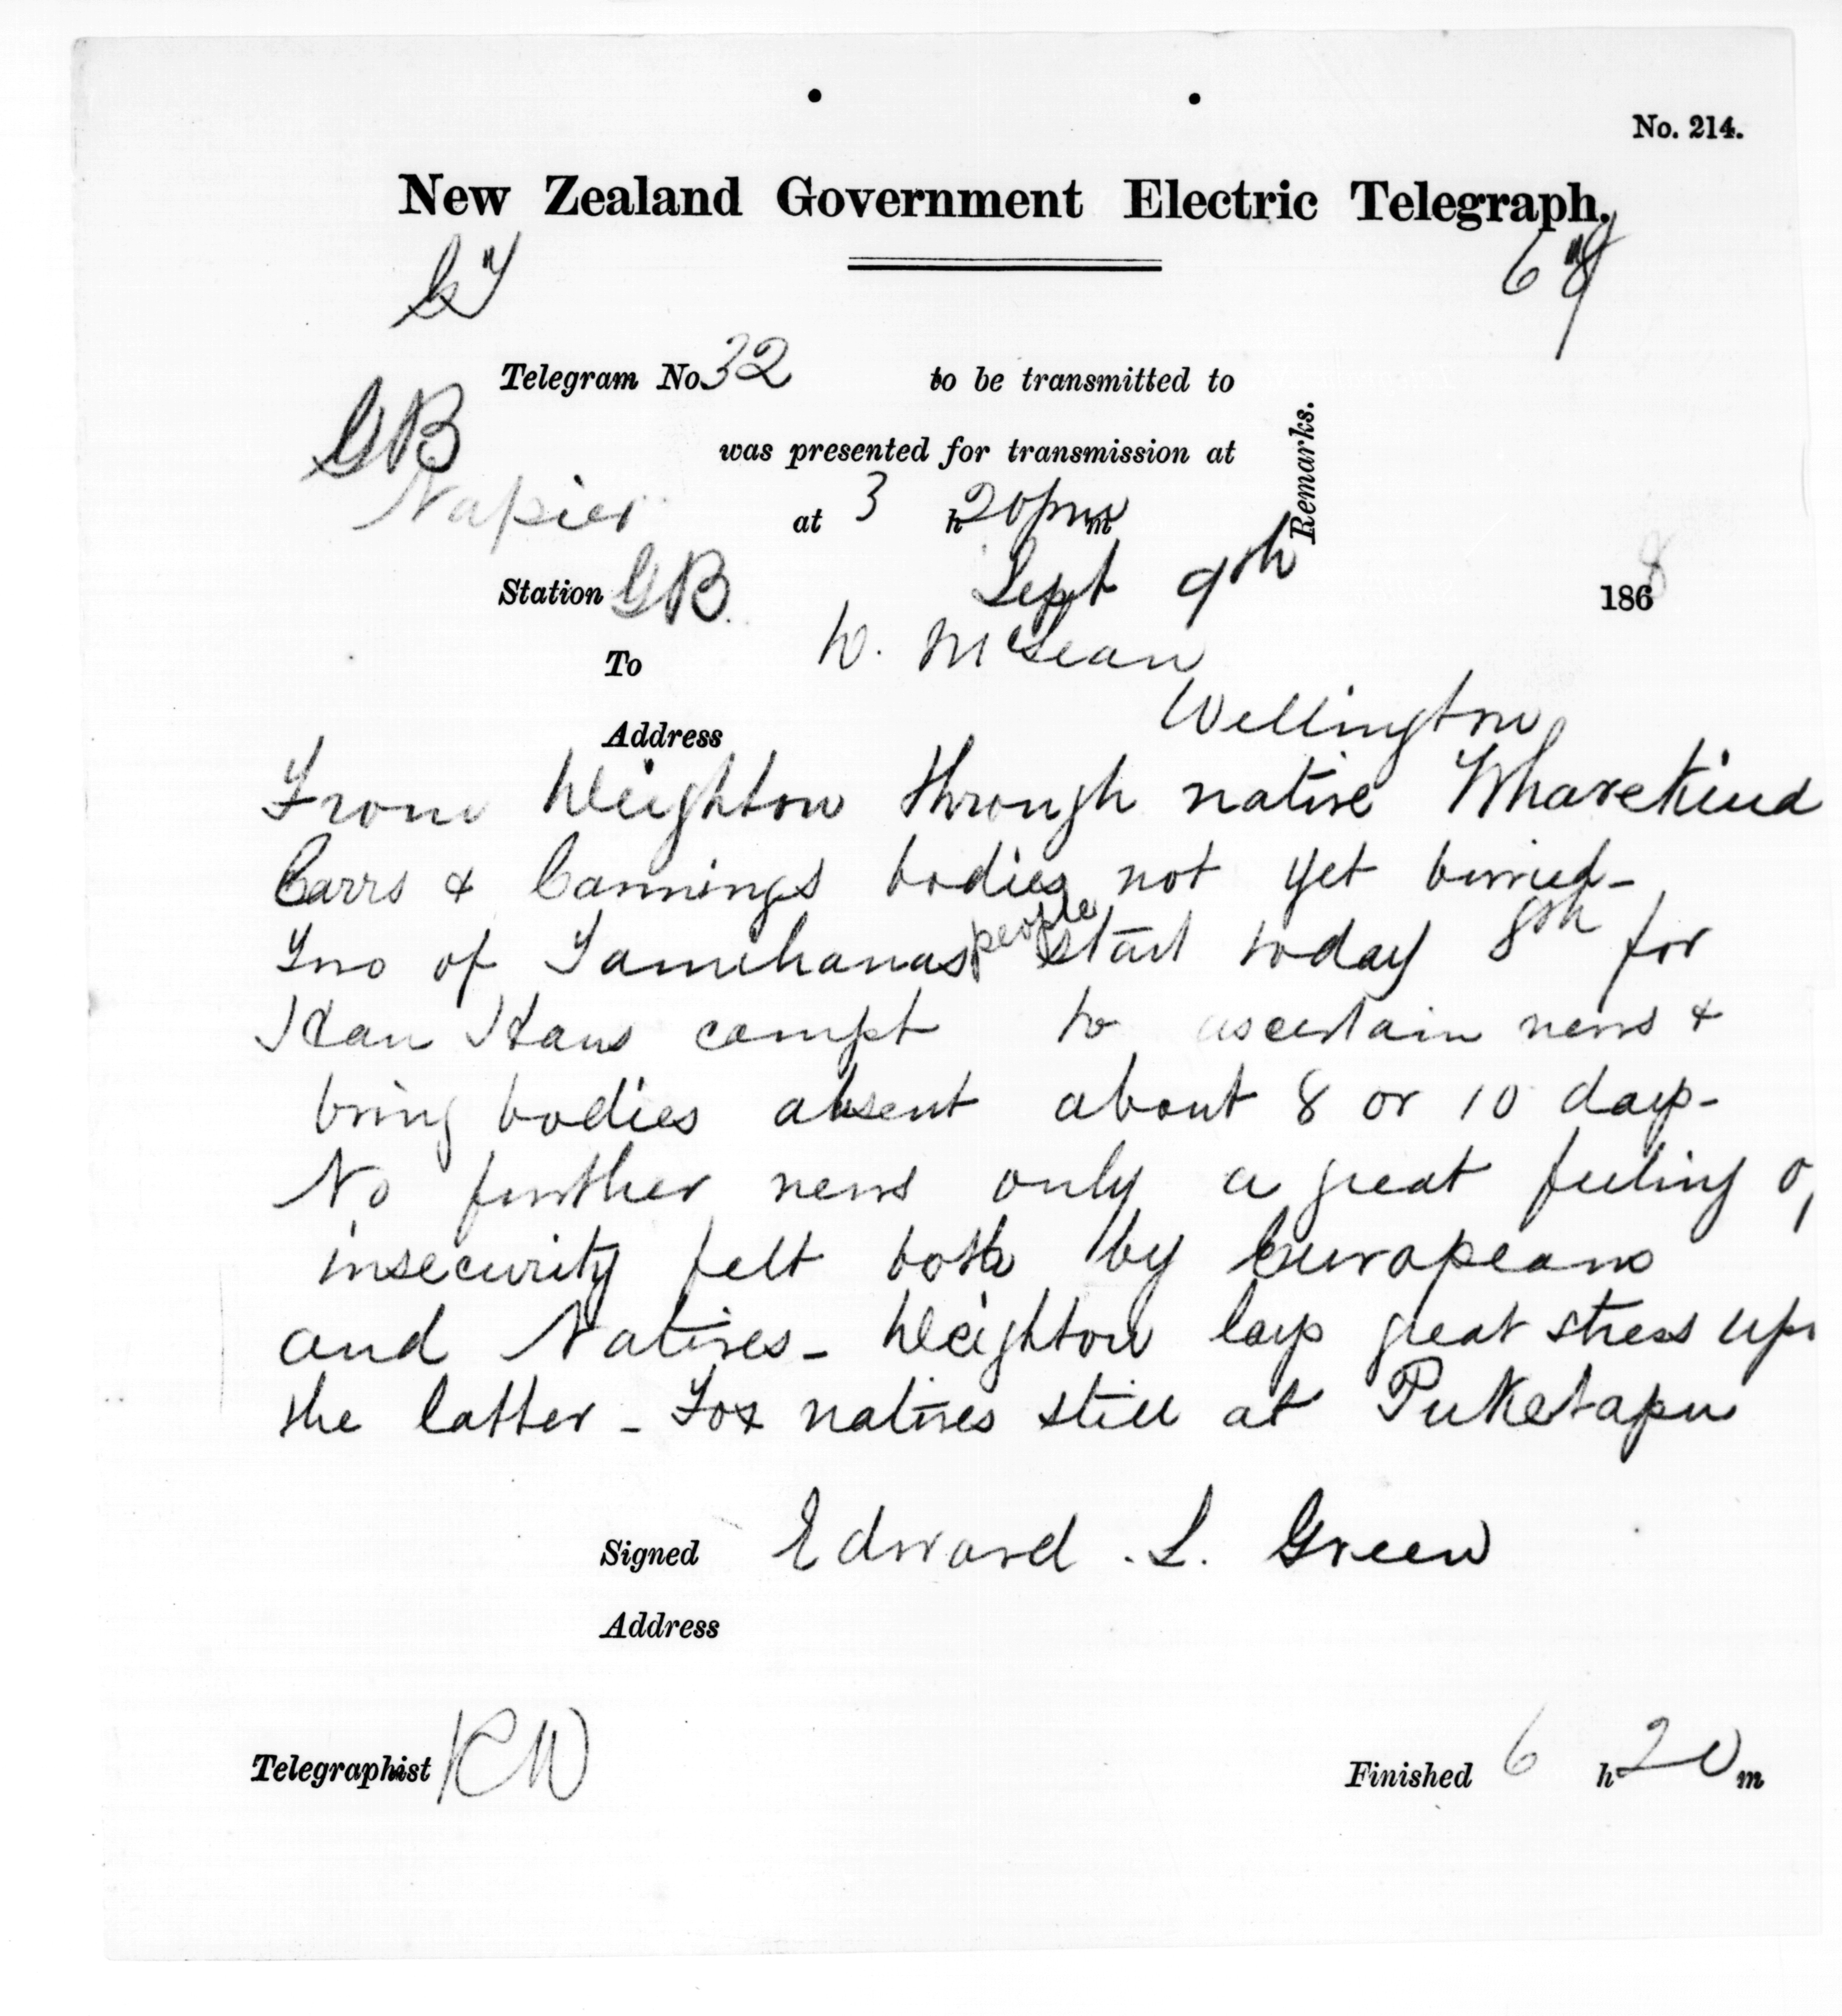 No. 214.
New Zealand Government Electric Telegraph.
Telegram No. 32 to be transmitted to
GB
was presented for transmission at
Remarks.
Napier
at 3 h 20 pm m
Station GB. Sept 9th 1868
To D. McLean
Address Wellington
From Deighton through native Wharekina
Carrs & Cannings bodies not yet burried -
Two of Tamihanas people start today 8th for
Hau Haus campt to ascertain news &
bring bodies absent about 8 or 10 days -
No further news only a great feeling of
insecurity felt both by Europeans
and Natives - Deighton lays great stress upn
the latter - Fox natives still at Puketapu
Signed Edward . L. Green
Address
Telegraphist
Finished 6 h 20 m